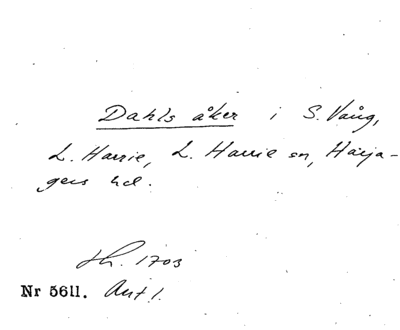 Dahls åker i S. Vång,
L. Harrie, L. Harrie sn, Harja-
gers hd.
th. 1703
Nr 5611. Ant 1.